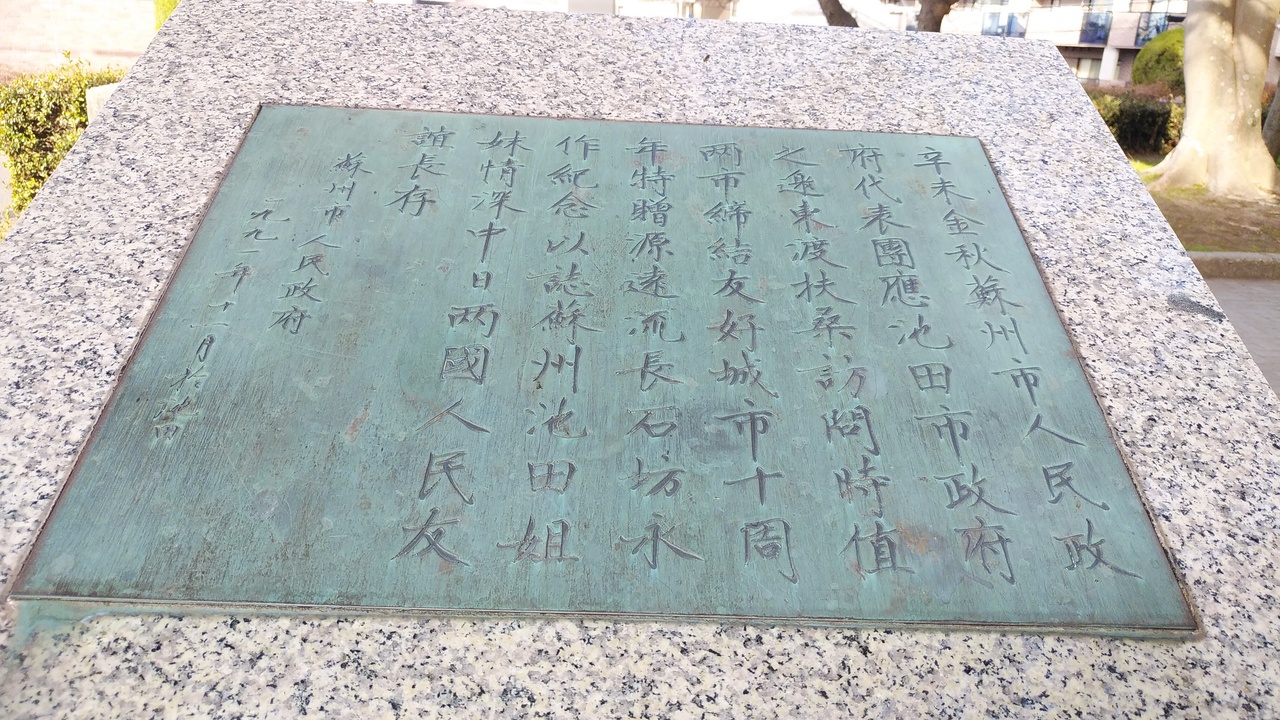 辛未金秋蘇州市人民政
府代表團應池田市政府
之邀東渡扶桑訪問時值
两市締結友好城市十周
年特贈源遠流長石坊永
作紀念以誌蘇州池田姐
妹情深中日两國人民友
誼長存
蘇州市人民政府
一九九一年十一月於